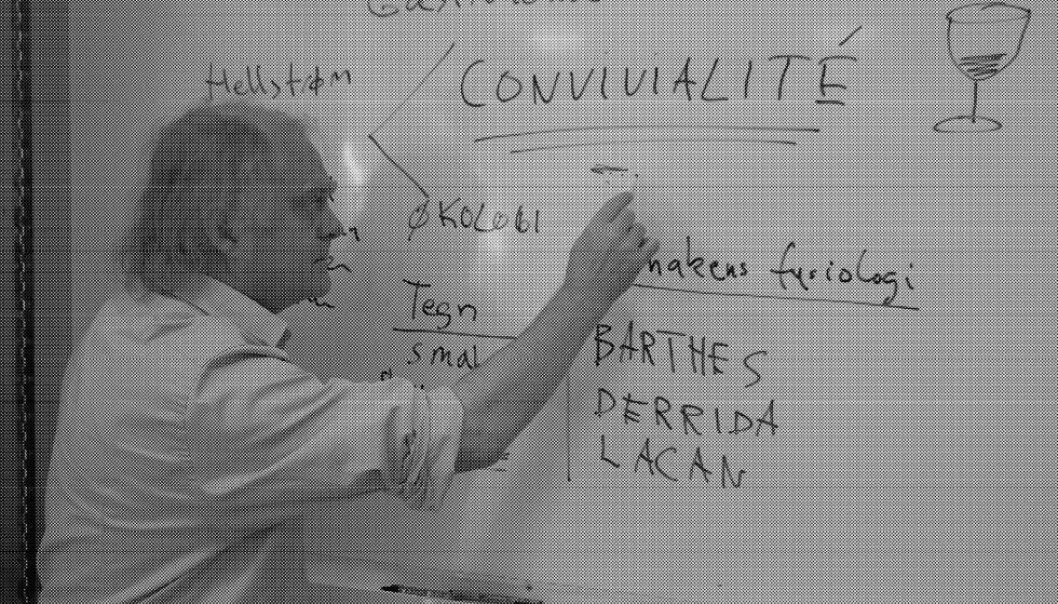 Hellstrøm
CONVIVIALITÉ
ØKOLOGI
makens fysiologi
Tegn
smak
BARTHES
DERRIDA
LACAN